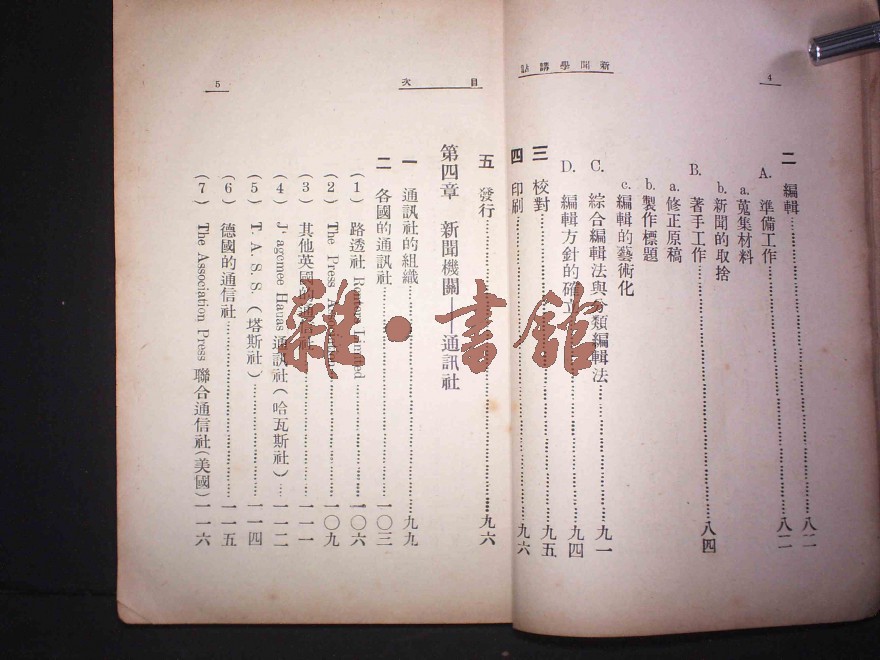 4
新聞學講話
二 編輯……八二
A. 準備工作……八二
a. 蒐集材料
b. 新聞的取捨
B. 著手工作……八四
a. 修正原稿
b. 製作標題
c. 編輯的藝術化
C. 綜合編輯法與分類編輯法……九一
D. 編輯方針的確立……九四
三 校對……九五
四 印刷……九六
五 發行……九六
目次
5
第四章 新聞機關——通訊社
一 通訊社的組織……九九
二 各國的通訊社……一〇三
(1) 路透社 Reuters Limited……一〇六
(2) The Press……一〇九
(3) 其他英國的通信社……一一一
(4) J'agemee Hauas 通訊社(哈瓦斯社)…一一二
(5) T. A. S. S. (塔斯社)……一一四
(6) 德國的通信社……一一五
(7) The Association Press 聯合通信社(美國)一一六
雜·書館